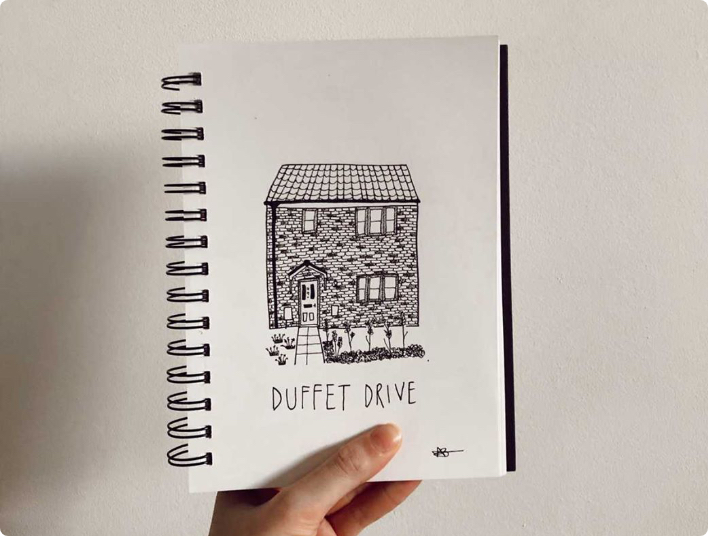 DUFFET DRIVE